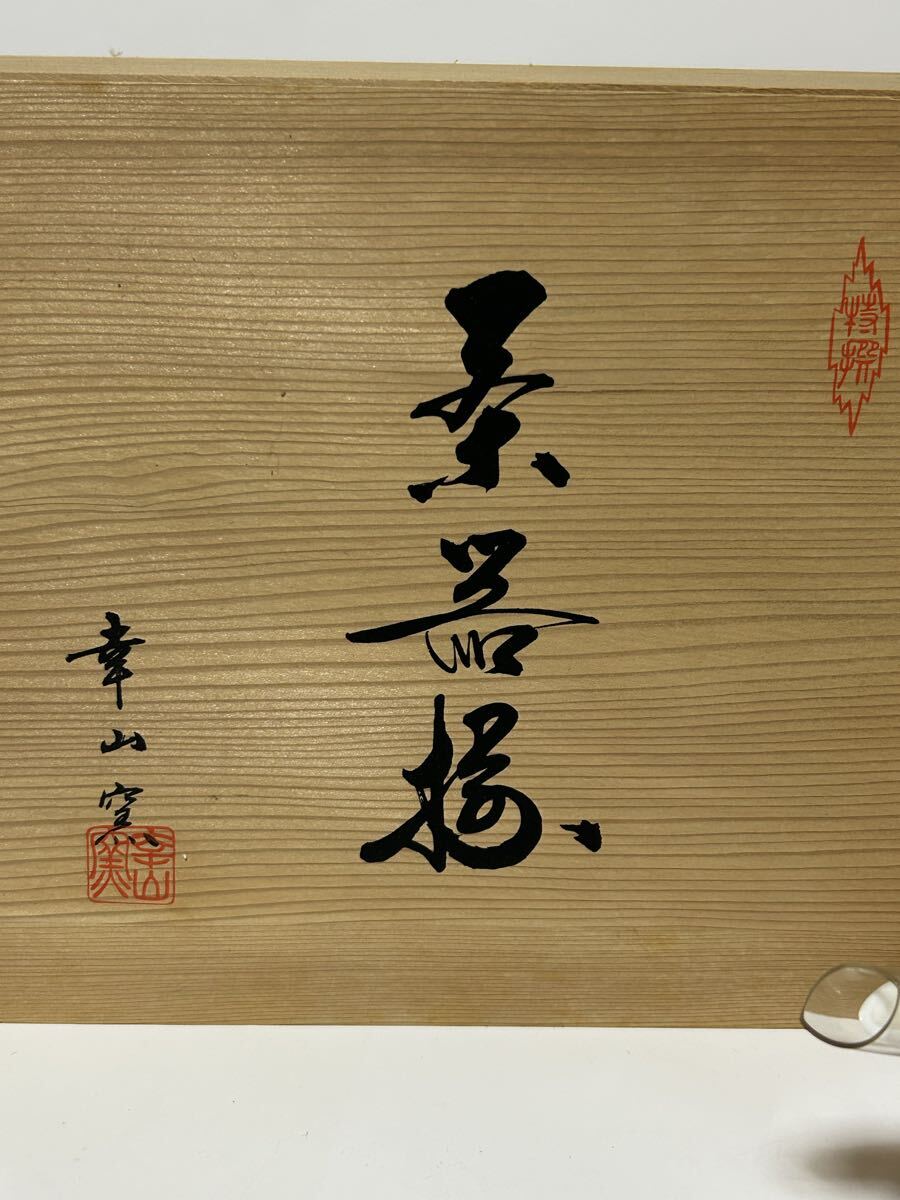 特撰
茶器揃
幸山窯
幸山窯